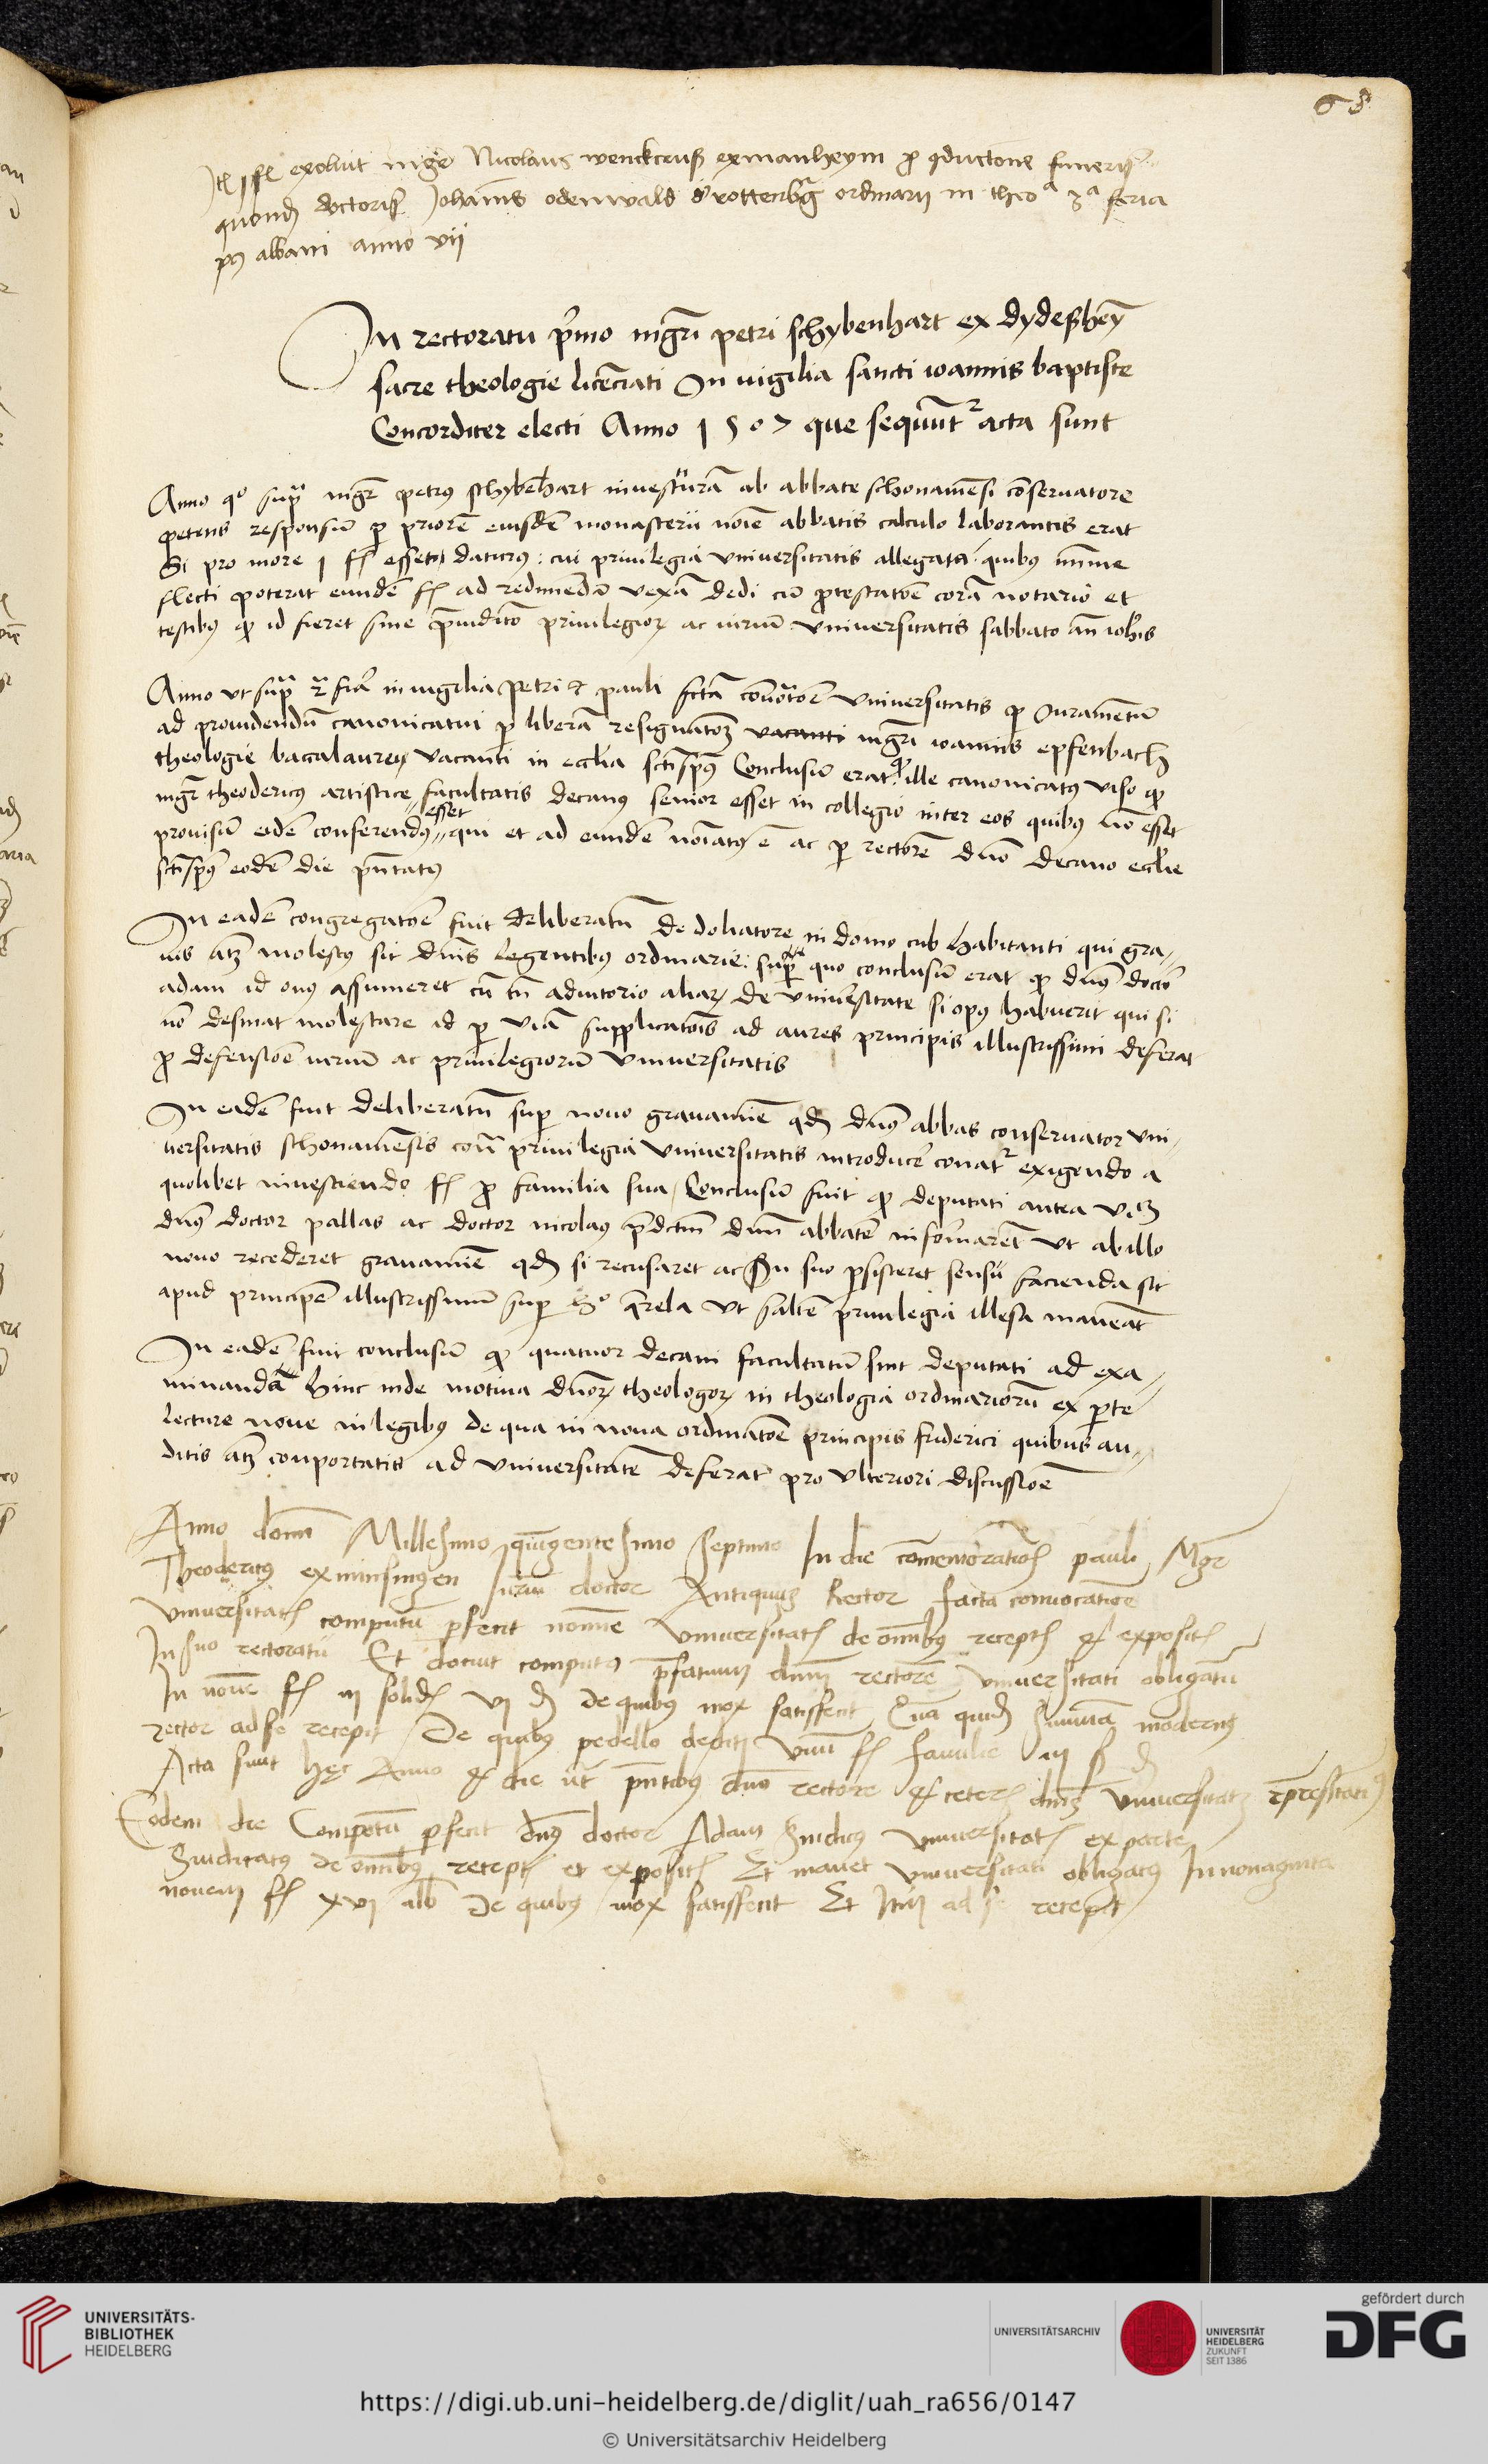 68
Jt̄ j fl exoluit mgr̄ Nicolaus wenckcruß ex manheym ꝓ ꝯductione funeris
quond̄ doctoris Johānis odenwald d' rottenb̄g ordinarij in theoᵃ 3ᵃ feria
pꝰ albani anno vij
In rectoratu p̄mo mgr̄i petri schybenhart ex dydeßhey̅
sacre theologie licēciati In vigilia sancti ioannis baptiste
Concorditer electi Anno 1507 que sequūt᷑ acta sunt
Anno qº sup̄ mgr̄ petrꝰ schybēhart inuesturā ab abbate schonaue̅si cōseruatore
petens responsu̅ ꝑ priore̅ eiusde̅ monasterii noīe abbatis calculo laborantis erat
Si pro more j fl esset daturꝰ: cui priuilegia vniuersitatis allegata quibꝰ mı̅me
flecti poterat eunde̅ fl ad redime̅dā vexā dedi cū ꝓtestatōe corā notario et
testibꝰ ꝙ id fieret sine p̄iuditio priuilegioꝝ ac iuriu̅ vniuersitatis sabbato an̄ ioh̄is
Anno vt sup̄ 2̄ fīa in vigilia petri et pauli fc̄tā cōuocatōe vniuersitatis ꝑ Iurame̅tu̅
ad prouidendu̅ canonicatui ꝑ liberā resignatōꝫ vacanti mgr̄i ioannis epfenbach
theologie baccalaurei vacanti in ecclīa sc̄tispūs Conclusu̅ erat ꝙ ille canonicatꝰ viso ꝙ
mgr̄ theodericꝰ artistice facultatis decanꝰ senior esset in collegio inter eos quibꝰ nō esset
prouisu̅ eide̅ conferendꝰ esset qui et ad eunde̅ noīatꝰ ē ac ꝑ rectore̅ dn̄o decano eccl̄ie
sc̄tispūs eode̅ die pn̄tatꝰ
In eade̅ congregatōe fuit deliberatu̅ de doliatore in domo cub habitanti qui gra-
uis atꝫ molestꝰ sit dn̄is legentibꝰ ordinarie: sup̄ quo conclusu̅ erat ꝙ dn̄s doctor
adam id onꝰ assumeret cū tn̄ adiutorio alioꝝ de vniuersitate si opꝰ habuerit qui si
nō desinat molestare id ꝑ viā supplicatōis ad aures principis illustrissimi deferat
ꝓ defensiōe iuriu̅ ac priuilegioru̅ vniuersitatis
In eade̅ fuit deliberatu̅ sup̄ nouo grauamīe qd̄ dn̄s abbas conseruator vni-
uersitatis schonaue̅sis cōt̄ priuilegia vniuersitatis introducē conat᷑ exigendo a
quolibet inuestiendo fl ꝓ familia sua. Conclusu̅ fuit ꝙ deputati antea vꝫ
dn̄s doctor pallas ac doctor nicolaꝰ p̄dictu̅ dn̄m abbate̅ informare̅t vt ab illo
nouo recederet grauamīe qd̄ si recusaret ac in suo ꝑsisteret sensu̅ facienda sit
apud principe̅ illustrissimu̅ sup̄ hº q̄rela vt salte̅ priuilegia illesa maneāt
In eade̅ fuit conclusu̅ ꝙ quatuor decani facultatu̅ sint deputati ad exa-
minandā hinc inde motiua dn̄oꝝ theologoꝝ in theologia ordinarioru̅ ex ꝑte
lecture noue in legibꝰ de qua in noua ordinatōe principis friderici quibus au-
ditis atꝫ conportatis ad vniuersitate̅ deferat᷑ pro vlteriori discussiōe
Anno domī Millesimo quīgentesimo septimo In die cōmemorationis pauli Mgr̄
Theodericꝰ ex minsingen Iuriu̅ doctor Antiquus Rector facta conuocatiōe
vniuersitatis computu̅ ꝑfecit nomīe vniuersitatis de oīnibꝰ receptis et expositis
In suo rectoratu Et docuit computꝰ p̄fatum dn̄m rectore̅ vniuersitati obligatu̅
In noue̅ fl iij solidis vj d̄ de quibꝰ mox satisfecit Quā quid̄ summā modernꝰ
rector ad se recepit De quibꝰ pedello dedit vnu̅ fl familie iij ß d̄
Acta sunt hęc Anno et die ut pn̄tibꝰ dn̄o rectore et ceteris dn̄is vniuersitatē rep̄resētātibꝰ
Eodem die Computu̅ ꝑfecit dn̄s doctor Adam Sindicꝰ vniuersitatis ex parte
Sindicatꝰ de oīnibꝰ receptis et expositis Et manet vniuersitati obligatꝰ In nonaginta
nouem fl xvj alb de quibꝰ mox satisfecit Et Iteꝝ ad se recepit
UNIVERSITÄTS-
BIBLIOTHEK
HEIDELBERG
UNIVERSITÄTSARCHIV
UNIVERSITÄT
HEIDELBERG
ZUKUNFT
SEIT 1386
gefördert durch
DFG
https://digi.ub.uni-heidelberg.de/diglit/uah_ra656/0147
© Universitätsarchiv Heidelberg